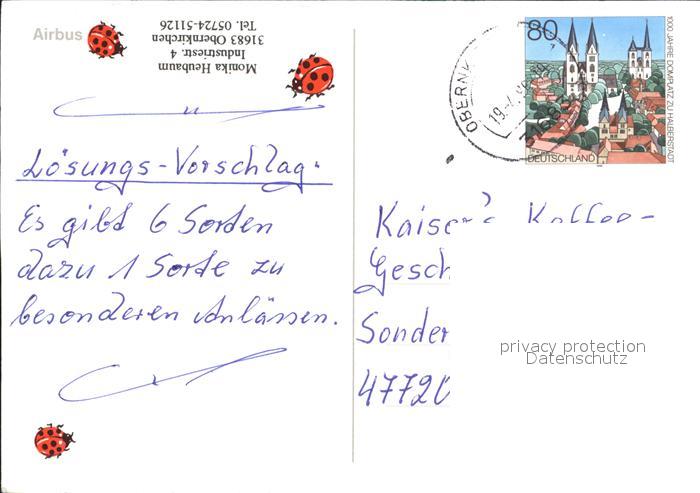 Airbus
Monika Heubaum
Industriestr. 4
31683 Obernkirchen
Tel. 05724-51126
Lösungs-Vorschlag.
Es gibt 6 Sorten
dazu 1 Sorte zu
besonderen Anlässen.
80
1000 JAHRE DOMPLATZ ZU HALBERSTADT
DEUTSCHLAND
OBERNK
Kaiser's Kaffee-
Gesch
Sonder
47720
privacy protection
Datenschutz